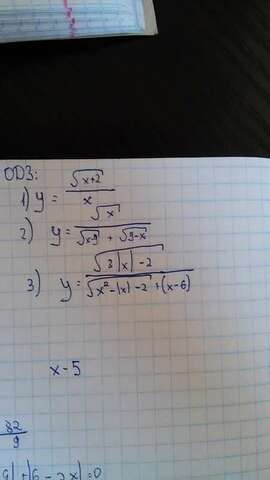 ОДЗ:
1) y = √(x+2) / x
2) y = √x / (√(x-9) + √(9-x))
3) y = √(3|x|-2) / (√(x²-|x|-2) + (x-6))
x-5
82/9